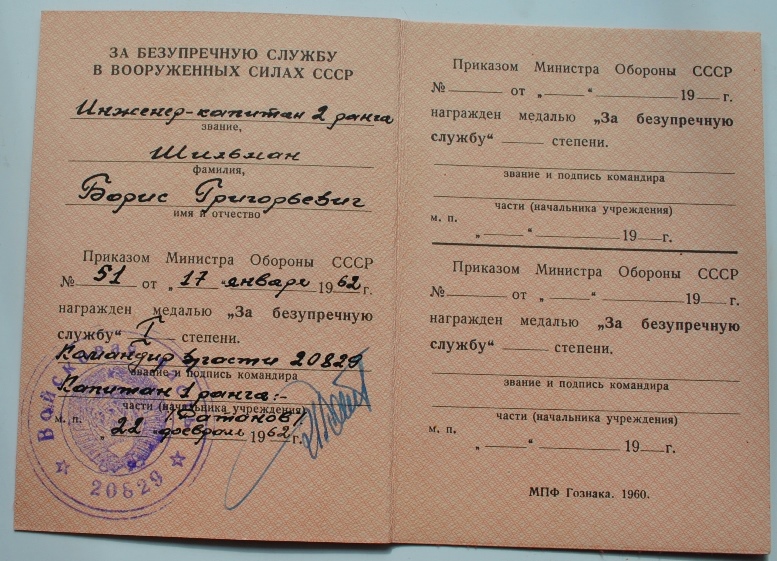 ЗА БЕЗУПРЕЧНУЮ СЛУЖБУ
В ВООРУЖЕННЫХ СИЛАХ СССР
Инженер-капитан 2 ранга
звание,
Шильман
фамилия,
Борис Григорьевич
имя и отчество
Приказом Министра Обороны СССР
№ 51 от „17" января 1962г.
награжден медалью „За безупречную
службу" I степени.
Командир в/части 20829
звание и подпись командира
Капитан 1 ранга:-
части (начальника учреждения)
м. п.
„22" февраль 1962г.
Войсковая
20829
Приказом Министра Обороны СССР
№ от „ " 19 г.
награжден медалью „За безупречную
службу" степени.
звание и подпись командира
части (начальника учреждения)
м. п.
„ " 19 г.
Приказом Министра Обороны СССР
№ от „ " 19 г.
награжден медалью „За безупречную
службу" степени.
звание и подпись командира
части (начальника учреждения)
м. п.
„ " 19 г.
МПФ Гознака. 1960.